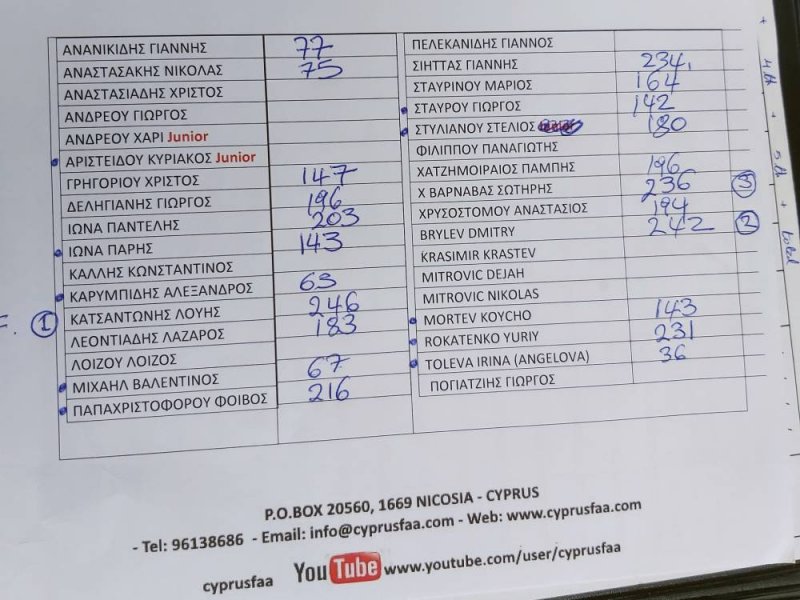 ΑΝΑΝΙΚΙΔΗΣ ΓΙΑΝΝΗΣ 77
ΑΝΑΣΤΑΣΑΚΗΣ ΝΙΚΟΛΑΣ 75
ΑΝΑΣΤΑΣΙΑΔΗΣ ΧΡΙΣΤΟΣ
ΑΝΔΡΕΟΥ ΓΙΩΡΓΟΣ
ΑΝΔΡΕΟΥ ΧΑΡΙ Junior
ΑΡΙΣΤΕΙΔΟΥ ΚΥΡΙΑΚΟΣ Junior
ΓΡΗΓΟΡΙΟΥ ΧΡΙΣΤΟΣ 147
ΔΕΛΗΓΙΑΝΗΣ ΓΙΩΡΓΟΣ 196
ΙΩΝΑ ΠΑΝΤΕΛΗΣ 203
ΙΩΝΑ ΠΑΡΗΣ 143
ΚΑΛΛΗΣ ΚΩΝΣΤΑΝΤΙΝΟΣ
ΚΑΡΥΜΠΙΔΗΣ ΑΛΕΞΑΝΔΡΟΣ 63
1 ΚΑΤΣΑΝΤΩΝΗΣ ΛΟΥΗΣ 246
ΛΕΟΝΤΙΑΔΗΣ ΛΑΖΑΡΟΣ 183
ΛΟΙΖΟΥ ΛΟΙΖΟΣ
ΜΙΧΑΗΛ ΒΑΛΕΝΤΙΝΟΣ 67
ΠΑΠΑΧΡΙΣΤΟΦΟΡΟΥ ΦΟΙΒΟΣ 216
ΠΕΛΕΚΑΝΙΔΗΣ ΓΙΑΝΝΟΣ
ΣΙΗΤΤΑΣ ΓΙΑΝΝΗΣ 234
ΣΤΑΥΡΙΝΟΥ ΜΑΡΙΟΣ 164
ΣΤΑΥΡΟΥ ΓΙΩΡΓΟΣ 142
ΣΤΥΛΙΑΝΟΥ ΣΤΕΛΙΟΣ 180
ΦΙΛΙΠΠΟΥ ΠΑΝΑΓΙΩΤΗΣ
ΧΑΤΖΗΜΟΙΡΑΙΟΣ ΠΑΜΠΗΣ 196
Χ ΒΑΡΝΑΒΑΣ ΣΩΤΗΡΗΣ 236 3
ΧΡΥΣΟΣΤΟΜΟΥ ΑΝΑΣΤΑΣΙΟΣ 194
BRYLEV DMITRY 242 2
KRASIMIR KRASTEV
MITROVIC DEJAH
MITROVIC NIKOLAS
MORTEV KOYCHO 143
ROKATENKO YURIY 231
TOLEVA IRINA (ANGELOVA) 36
ΠΟΓΙΑΤΖΗΣ ΓΙΩΡΓΟΣ
total
P.O.BOX 20560, 1669 NICOSIA - CYPRUS
- Tel: 96138686 - Email: info@cyprusfaa.com - Web: www.cyprusfaa.com
cyprusfaa YouTube www.youtube.com/user/cyprusfaa